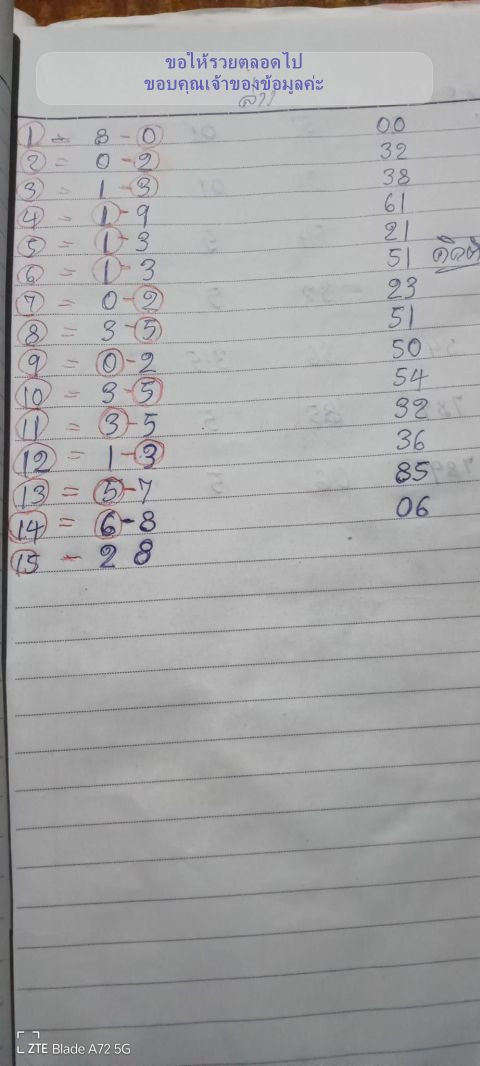 ขอให้รวยตลอดไป
ขอบคุณเจ้าของข้อมูลค่ะ
ล่าง
1 = 8-0 00
2 = 0-2 32
3 = 1-3 38
4 = 1-9 61
5 = 1-3 21
6 = 1-3 51
7 = 0-2 23
8 = 3-5 51
9 = 0-2 50
10 = 3-5 54
11 = 3-5 32
12 = 1-3 36
13 = 5-7 85
14 = 6-8 06
15 - 2 8
ZTE Blade A72 5G